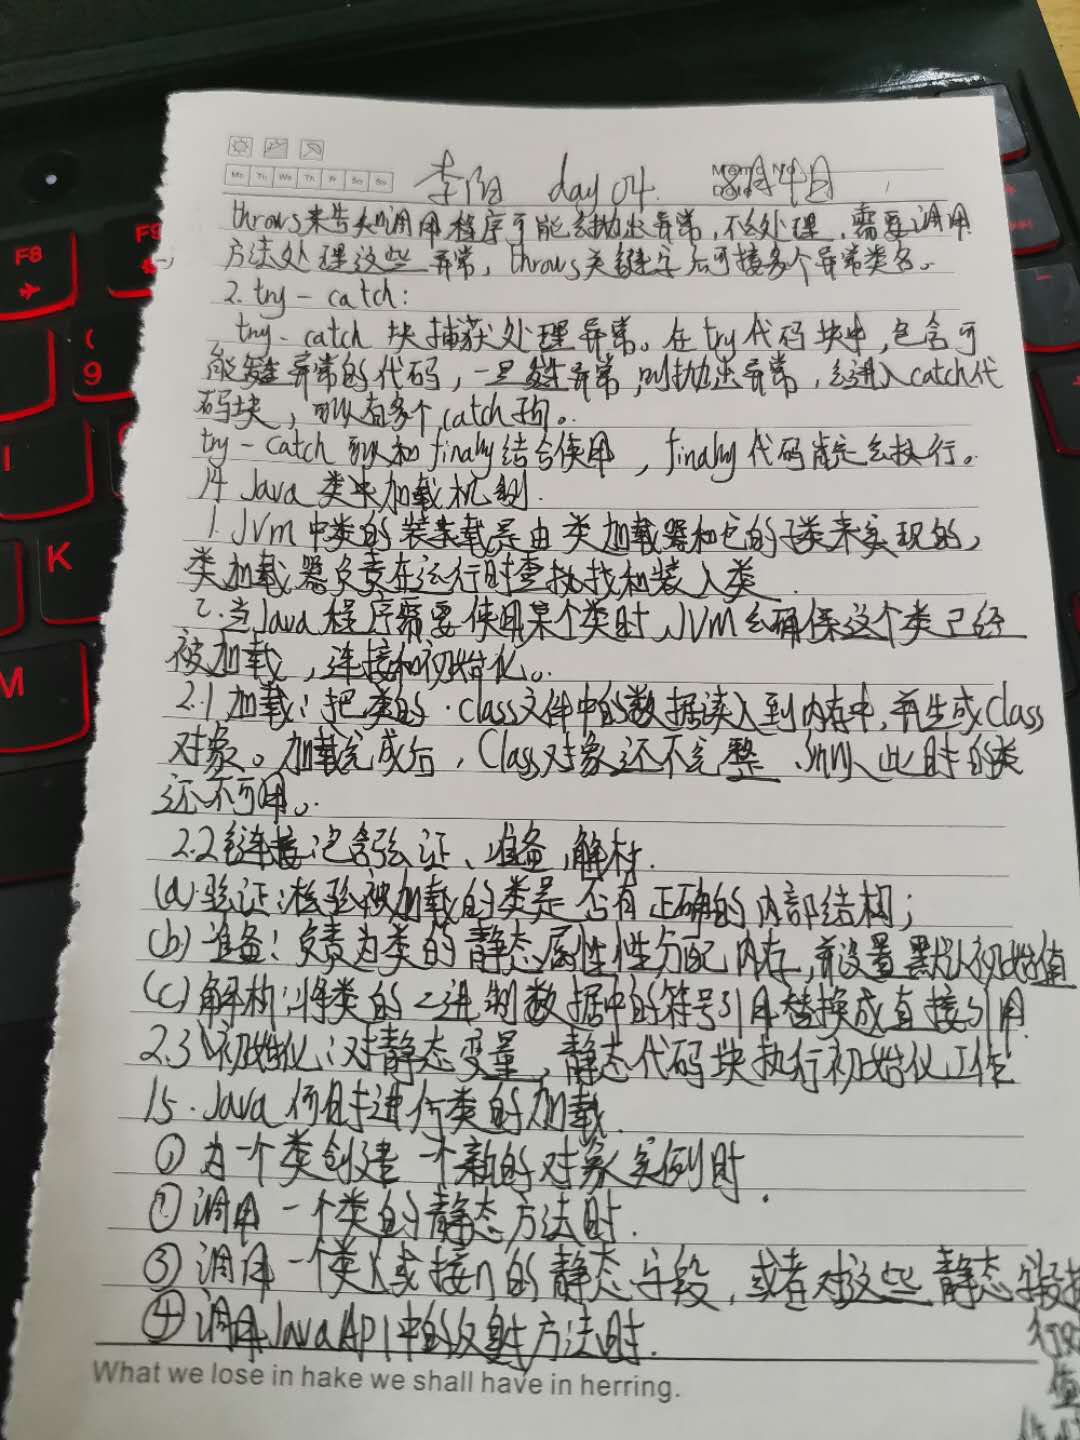 Mo Tu We Th Fr Sa Su
李阳 day 04.
throws来告知调用程序可能会抛出异常,不会处理,需要调用
方法处理这些异常,throws关键字后可接多个异常类名。
2. try-catch:
try-catch 块捕获处理异常。在try代码块中,包含可
能发生异常的代码,一旦发生异常,则抛出异常,会进入catch代
码块,可以有多个catch子句。
try-catch 可以和finally结合使用,finally代码肯定会执行。
14 Java 类加载机制.
1. JVM中类的装载是由类加载器和它的子类来实现的,
类加载器负责在运行时查找和装入类.
2.当Java程序需要使用某个类时,JVM会确保这个类已经
被加载,连接和初始化。
2.1 加载:把类的.class文件中的数据读入到内存中,并生成Class
对象。加载完成后,Class对象还不完整、此时的类
还不可用。
2.2链接:包含验证、准备,解析.
(a)验证:检验被加载的类是否有正确的内部结构;
(b)准备:负责为类的静态属性性分配内存,并设置默认初始值
(c)解析:将类的二进制数据中的符号引用替换成直接引用.
2.3 初始化:对静态变量,静态代码块执行初始化工作
15.Java何时进行类的加载.
①为一个类创建一个新的对象实例时.
②调用一个类的静态方法时.
③调用一个类或接口的静态字段,或者对这些静态字段执
行
值
④调用Java API中的反射方法时.
What we lose in hake we shall have in herring.